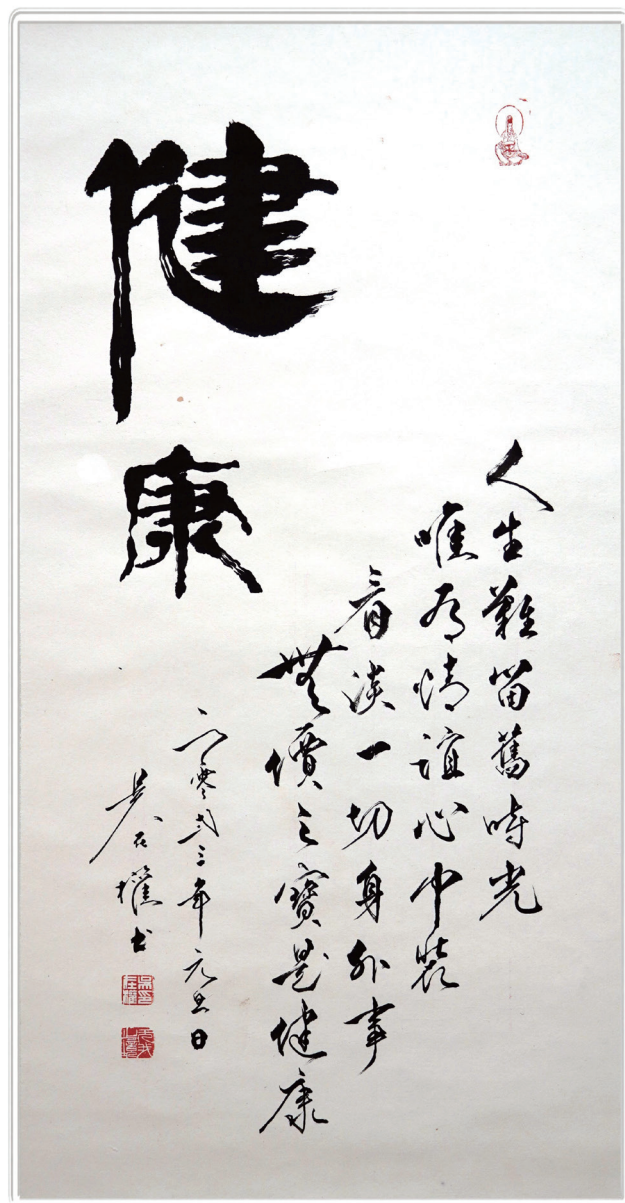 健康
人生難留舊時光
唯有情誼心中裝
看淡一切身外事
無價之寶是健康
二零弍三年元旦日
吴石權书